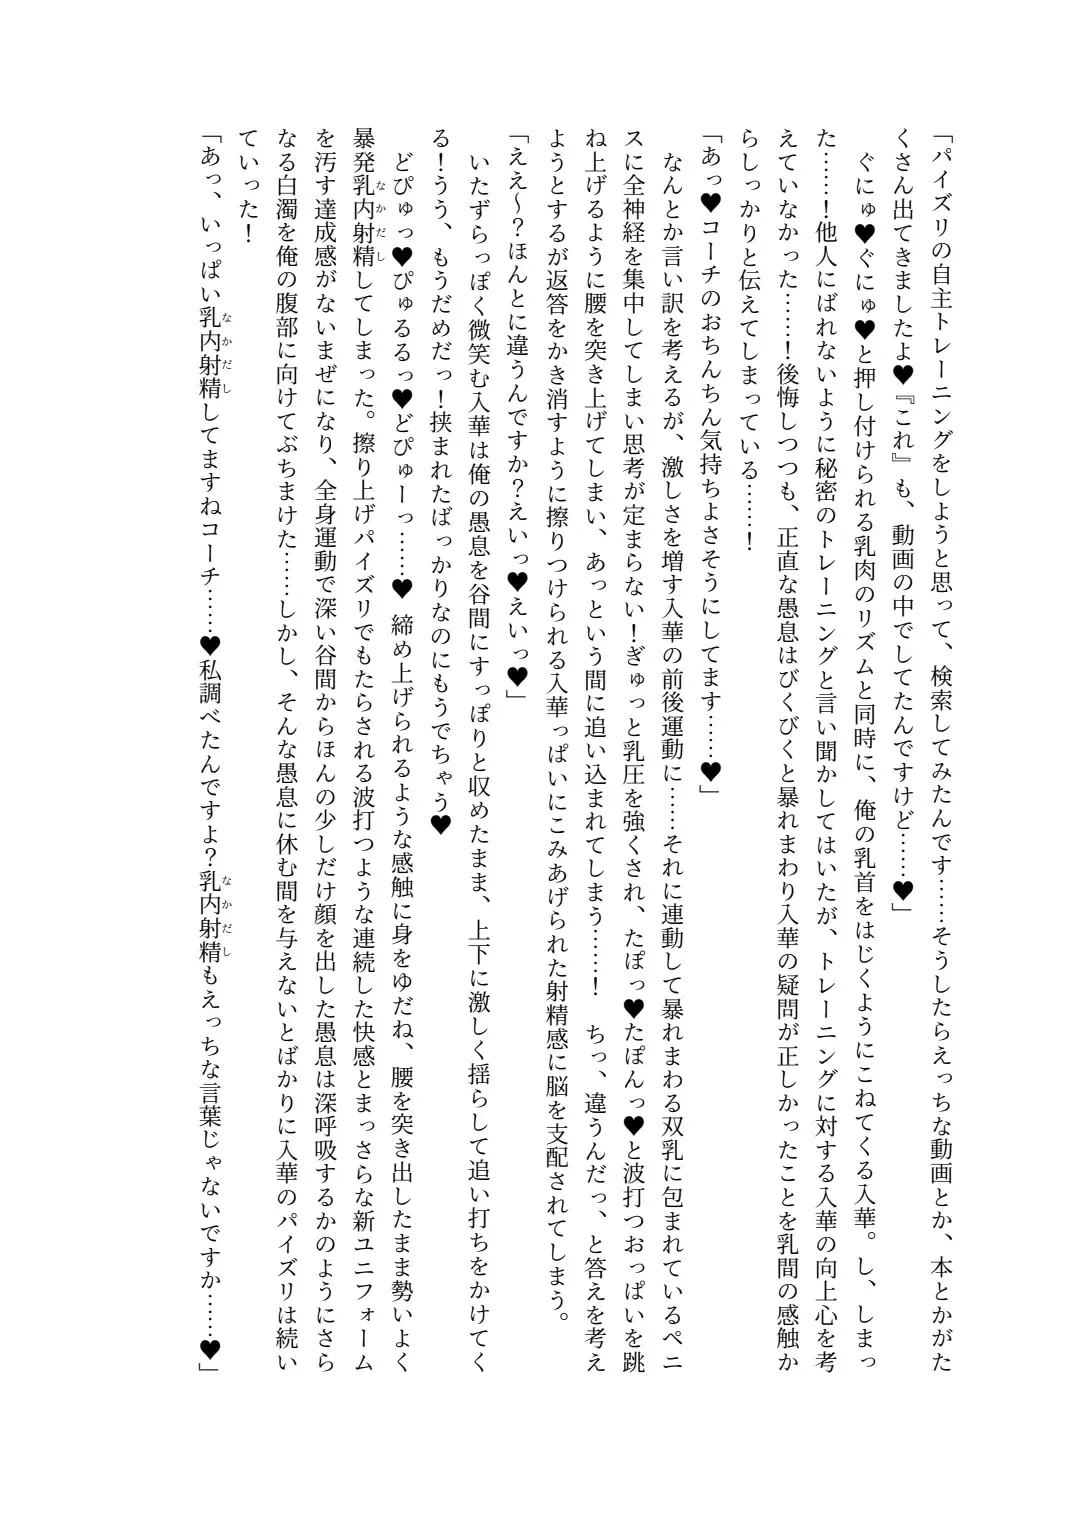 「パイズリの自主トレーニングをしようと思って、検索してみたんです……そうしたらえっちな動画とか、本とかがた
くさん出てきましたよ♥『これ』も、動画の中でしてたんですけど……♥」
ぐにゅ♥ぐにゅ♥と押し付けられる乳肉のリズムと同時に、俺の乳首をはじくようにこねてくる入華。し、しまっ
た……！他人にばれないように秘密のトレーニングと言い聞かしてはいたが、トレーニングに対する入華の向上心を考
えていなかった……！後悔しつつも、正直な愚息はびくびくと暴れまわり入華の疑問が正しかったことを乳間の感触か
らしっかりと伝えてしまっている……！
「あっ♥コーチのおちんちん気持ちよさそうにしてます……♥」
なんとか言い訳を考えるが、激しさを増す入華の前後運動に……それに連動して暴れまわる双乳に包まれているペニ
スに全神経を集中してしまい思考が定まらない！ぎゅっと乳圧を強くされ、たぽっ♥たぽんっ♥と波打つおっぱいを跳
ね上げるように腰を突き上げてしまい、あっという間に追い込まれてしまう……！　ちっ、違うんだっ、と答えを考え
ようとするが返答をかき消すように擦りつけられる入華っぱいにこみあげられた射精感に脳を支配されてしまう。
「ええ～？ほんとに違うんですか？えいっ♥えいっ♥」
いたずらっぽく微笑む入華は俺の愚息を谷間にすっぽりと収めたまま、上下に激しく揺らして追い打ちをかけてく
る！うう、もうだめだっ！挟まれたばっかりなのにもうでちゃう♥
どぴゅっ♥ぴゅるるっ♥どぴゅーっ……♥　締め上げられるような感触に身をゆだね、腰を突き出したまま勢いよく
暴発乳内射精（なかだし）してしまった。擦り上げパイズリでもたらされる波打つような連続した快感とまっさらな新ユニフォーム
を汚す達成感がないまぜになり、全身運動で深い谷間からほんの少しだけ顔を出した愚息は深呼吸するかのようにさら
なる白濁を俺の腹部に向けてぶちまけた……しかし、そんな愚息に休む間を与えないとばかりに入華のパイズリは続い
ていった！
「あっ、いっぱい乳内射精（なかだし）してますねコーチ……♥私調べたんですよ？乳内射精（なかだし）もえっちな言葉じゃないですか……♥」